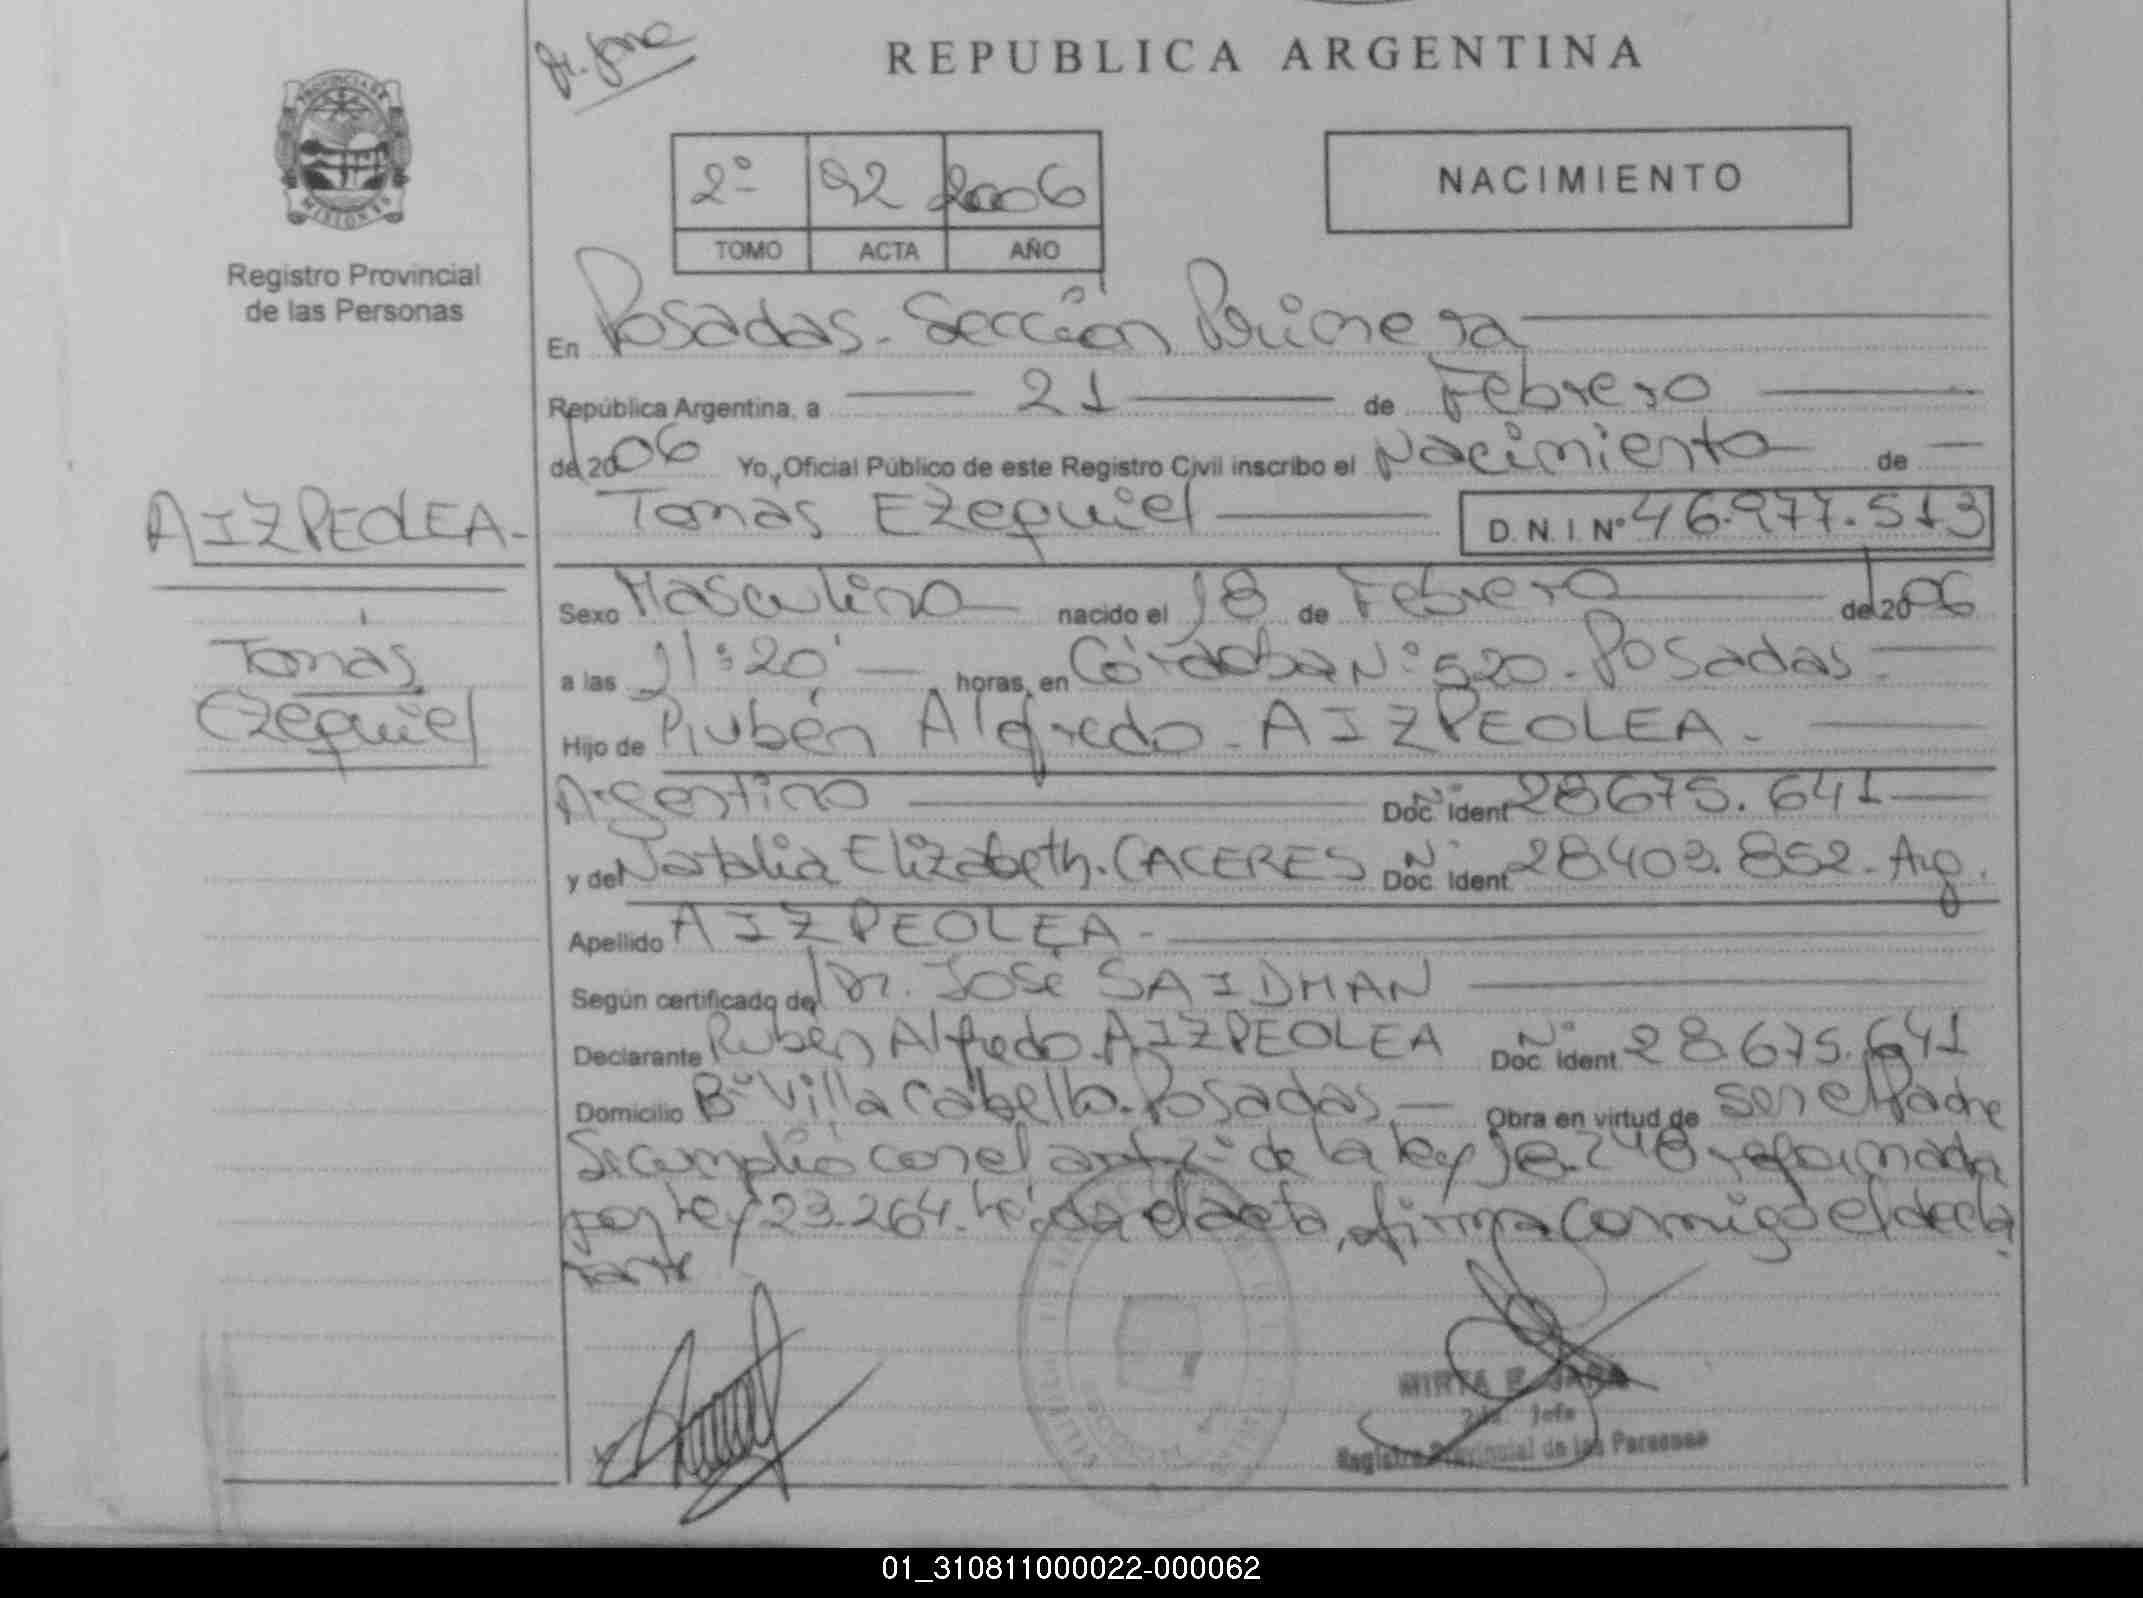 Dr. Jara
REPUBLICA ARGENTINA
PROVINCIA DE
MISIONES
Registro Provincial
de las Personas
2º 92 2006
TOMO ACTA AÑO
NACIMIENTO
En Posadas - Sección Primera
República Argentina, a 21 de Febrero
del 2006 Yo, Oficial Público de este Registro Civil inscribo el Nacimiento de
Tomás Ezequiel D.N.I. Nº 46.977.513
AIZPEOLEA -
Tomás
Ezequiel
Sexo Masculino nacido el 18 de Febrero del 2006
a las 21:20' horas, en Córdoba Nº 520 - Posadas -
Hijo de Rubén Alfredo - AIZPEOLEA -
Argentino Doc. Ident Nº 28675.641
y de Natalia Elizabeth. CACERES Doc. Ident Nº 28403.852 - Arg.
Apellido AIZPEOLEA -
Según certificado del Dr. José SAIDMAN
Declarante Rubén Alfredo AIZPEOLEA Doc. Ident. Nº 28.675.641
Domicilio Bº Villa Cabello - Posadas - Obra en virtud de ser el Padre
Se cumplió con el art 2º de la ley 18.248 reformada
por ley 23.264. Leída el acta, firma conmigo el decla
rante
MIRTA E. JARA
2da. Jefe
Registro Provincial de las Personas
01_310811000022-000062